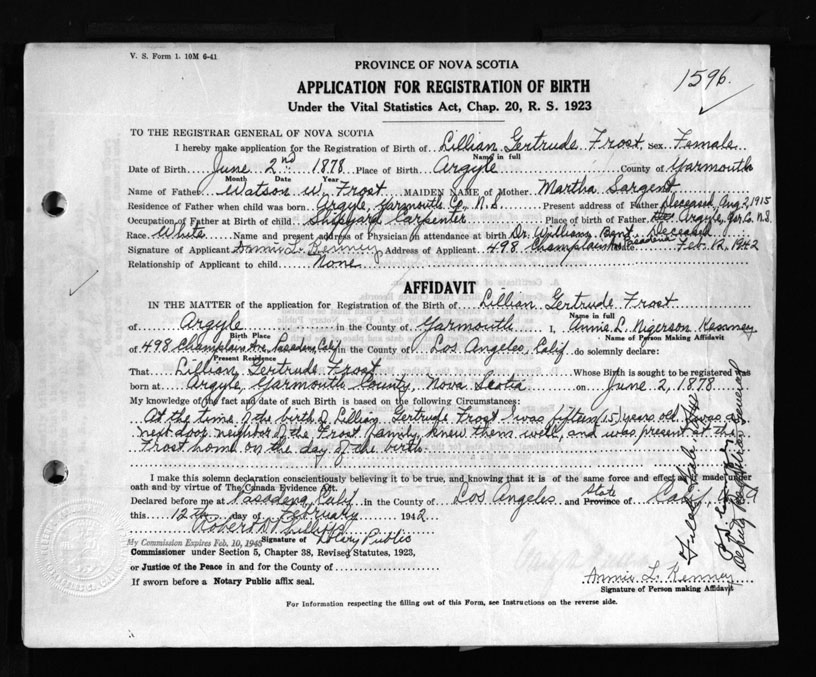 V. S. Form 1. 10M 6-41
PROVINCE OF NOVA SCOTIA
1596.
APPLICATION FOR REGISTRATION OF BIRTH
Under the Vital Statistics Act, Chap. 20, R. S. 1923
TO THE REGISTRAR GENERAL OF NOVA SCOTIA
I hereby make application for the Registration of Birth of Lillian Gertrude Frost Sex Female
Name in full
Date of Birth June 2nd 1878 Place of Birth Argyle County of Yarmouth
Month Date Year
Name of Father Watson W. Frost MAIDEN NAME of Mother Martha Sargent
Residence of Father when child was born Argyle, Yarmouth Co. N.S. Present address of Father Deceased Aug 2, 1915
Occupation of Father at Birth of child Shipyard Carpenter Place of birth of Father Argyle, Yar. Co. N.S.
Race White Name and present address of Physician in attendance at birth Dr. William Bent. Deceased
Signature of Applicant Annie L. Kenney Address of Applicant 498 Champlain Pasadena Date Feb. 12, 1942
Relationship of Applicant to child None
AFFIDAVIT
IN THE MATTER of the application for Registration of the Birth of Lillian Gertrude Frost
Name in full
of Argyle in the County of Yarmouth I, Annie L. Kenney
Birth Place Name of Person Making Affidavit
of 498 Champlain Ave, Pasadena, Calif in the County of Los Angeles, Calif do solemnly declare:
Present Residence
That Lillian Gertrude Frost Whose Birth is sought to be registered was
born at Argyle, Yarmouth County, Nova Scotia on June 2, 1878
My knowledge of the fact and date of such Birth is based on the following Circumstances:
At the time of the birth of Lillian Gertrude Frost I was fifteen (15) years old. I was a
next door neighbor of the Frost family, knew them well, and was present at the
Frost home on the day of the birth.
I make this solemn declaration conscientiously believing it to be true, and knowing that it is of the same force and effect as if made under
oath and by virtue of The Canada Evidence Act.
Declared before me at Pasadena, Calif in the County of Los Angeles and State Province of Calif.
this 12th day of February 1942
Robert
My Commission Expires Feb. 10, 1945 Signature of Notary Public
Commissioner under Section 5, Chapter 38, Revised Statutes, 1923,
or Justice of the Peace in and for the County of
If sworn before a Notary Public affix seal.
Annie L. Kenney
Signature of Person making Affidavit
For Information respecting the filling out of this Form, see Instructions on the reverse side.
Deputy Registrar General